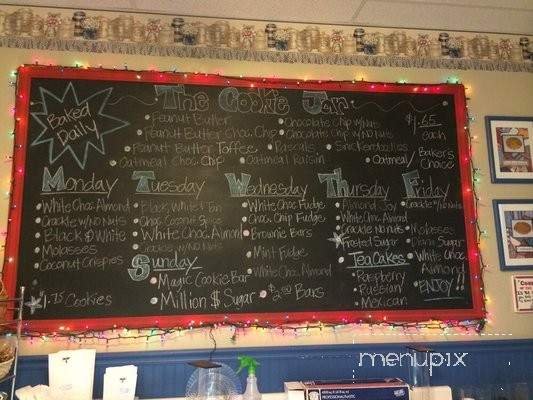 The Cookie Jar
Baked
Daily
Peanut Butter
Peanut Butter Choc. Chip
Peanut Butter Toffee
Oatmeal Choc Chip
Chocolate Chip w/Nuts
Chocolate Chip w/No Nuts
Rascals
Snickerdoodles
Oatmeal Raisin
Oatmeal
$1.65
each
Baker's
Choice
Monday
White Choc. Almond
Crackle w/No Nuts
Black & White
Molasses
Coconut Crispies
Tuesday
Black White &
Choc. Coconut Spice
White Choc. Almond
Crackle w/ No Nuts
Wednesday
White Choc Fudge
Choc. Chip Fudge
Brownie Bars
Mint Fudge
White Choc Almond
Thursday
Almond Joy
White Choc. Almond
Crackle No Nuts
Frosted Sugar
Tea Cakes
Raspberry
Russian
Mexican
Friday
Crackle w/No Nuts
Molasses
Sugar
White Choc
Almond
ENJOY!!
Sunday
Magic Cookie Bar
Million $ Sugar
1.75 Cookies
$2.00 Bars
PROFESSIONAL
menupix